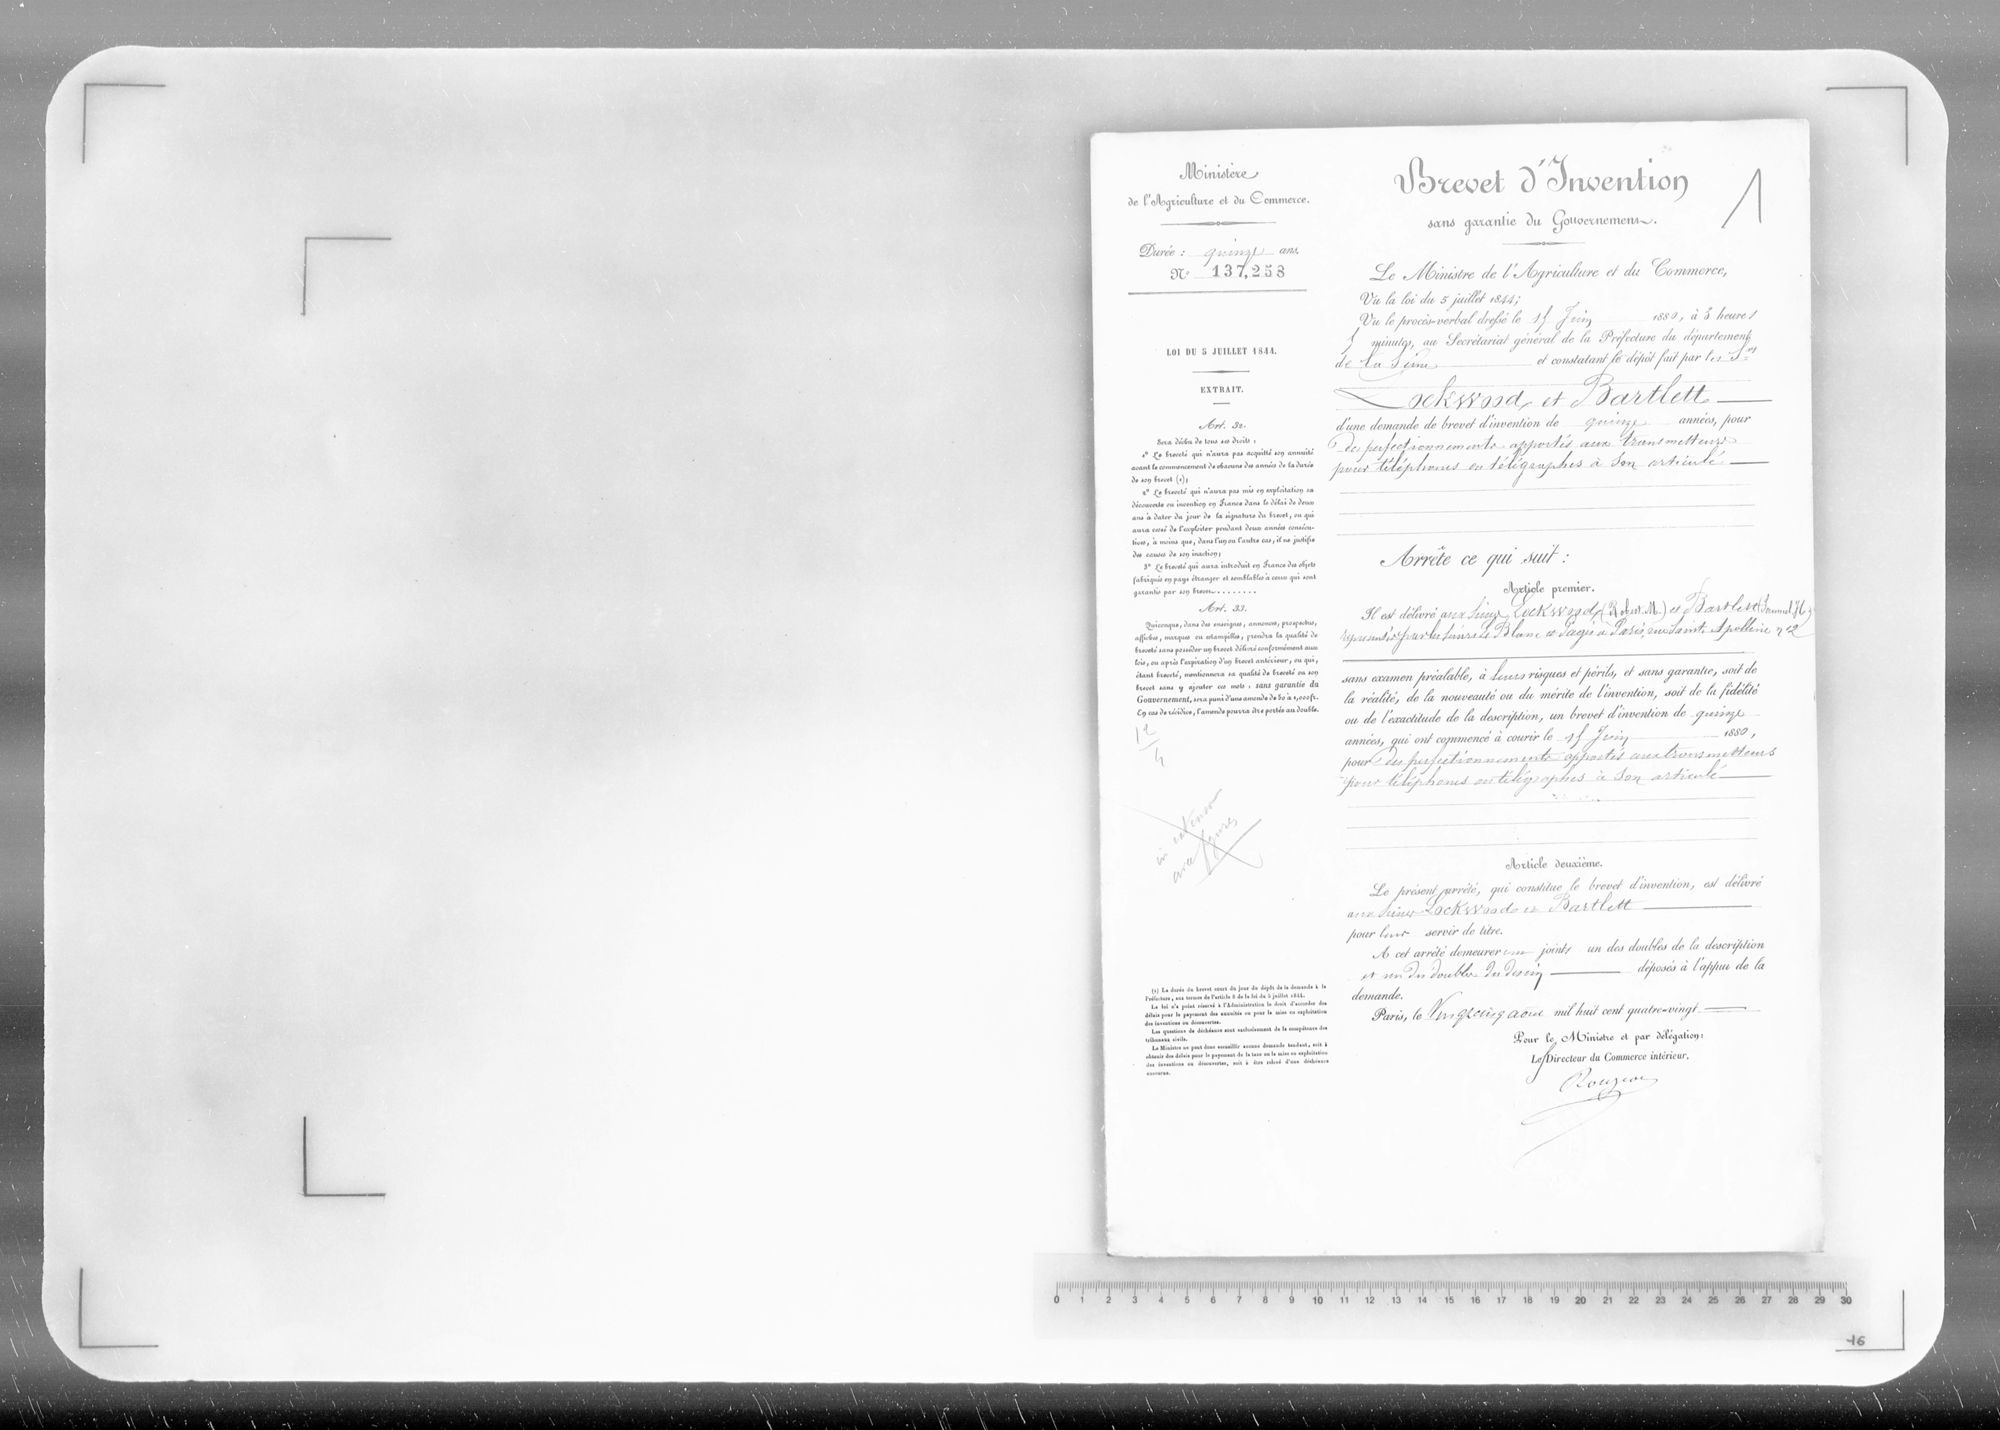 Ministère
de l'Agriculture et du Commerce.
Durée : quinze ans.
N° 137,258
LOI DU 5 JUILLET 1844.
EXTRAIT.
Art. 32.
Sera déchu de tous ses droits :
1° Le breveté qui n'aura pas acquitté son annuité
avant le commencement de chacune des années de la durée
de son brevet (1);
2° Le breveté qui n'aura pas mis en exploitation sa
découverte ou invention en France dans le délai de deux
ans à dater du jour de la signature du brevet, ou qui
aura cessé de l'exploiter pendant deux années consécu-
tives, à moins que, dans l'un ou l'autre cas, il ne justifie
des causes de son inaction;
3° Le breveté qui aura introduit en France des objets
fabriqués en pays étranger et semblables à ceux qui sont
garantis par son brevet........
Art. 33.
Quiconque, dans des enseignes, annonces, prospectus,
affiches, marques ou estampilles, prendra la qualité de
breveté sans posséder un brevet délivré conformément aux
lois, ou après l'expiration d'un brevet antérieur, ou qui,
étant breveté, mentionnera sa qualité de breveté ou son
brevet sans y ajouter ces mots : sans garantie du
Gouvernement, sera puni d'une amende de 50 à 1,000 fr.
En cas de récidive, l'amende pourra être portée au double.
12
in extenso
avec figures
(1) La durée du brevet court du jour du dépôt de la demande à la
Préfecture, aux termes de l'article 8 de la loi du 5 juillet 1844.
La loi n'a point réservé à l'Administration le droit d'accorder des
délais pour le payement des annuités ou pour la mise en exploitation
des inventions ou découvertes.
Les questions de déchéance sont exclusivement de la compétence des
tribunaux civils.
Le Ministre ne peut donc accueillir aucune demande tendant, soit à
obtenir des délais pour le payement de la taxe ou la mise en exploitation
des inventions ou découvertes, soit à être relevé d'une déchéance
encourue.
Brevet d'Invention
1
sans garantie du Gouvernement.
Le Ministre de l'Agriculture et du Commerce,
Vu la loi du 5 juillet 1844;
Vu le procès-verbal dressé le 15 Juin 1880, à 3 heures
5 minutes, au Secrétariat général de la Préfecture du département
de la Seine et constatant le dépôt fait par les Srs
Lockwood et Bartlett
d'une demande de brevet d'invention de quinze années, pour
des perfectionnements apportés aux transmetteurs
pour téléphones ou télégraphes à son articulé
Arrête ce qui suit :
Article premier.
Il est délivré aux sieurs Lockwood (Robert M.) et Bartlett (Samuel H.)
représentés par les sieurs Le Blanc et Pagès à Paris, rue Sainte Apolline n° 2
sans examen préalable, à leurs risques et périls, et sans garantie, soit de
la réalité, de la nouveauté ou du mérite de l'invention, soit de la fidélité
ou de l'exactitude de la description, un brevet d'invention de quinze
années, qui ont commencé à courir le 15 Juin 1880,
pour des perfectionnements apportés aux transmetteurs
pour téléphones ou télégraphes à son articulé
Article deuxième.
Le présent arrêté, qui constitue le brevet d'invention, est délivré
aux sieurs Lockwood et Bartlett
pour leur servir de titre.
A cet arrêté demeureront joints un des doubles de la description
et un des doubles du dessin déposés à l'appui de la
demande.
Paris, le Vingt cinq août mil huit cent quatre-vingt
Pour le Ministre et par délégation:
Le Directeur du Commerce intérieur.
0 1 2 3 4 5 6 7 8 9 10 11 12 13 14 15 16 17 18 19 20 21 22 23 24 25 26 27 28 29 30
16